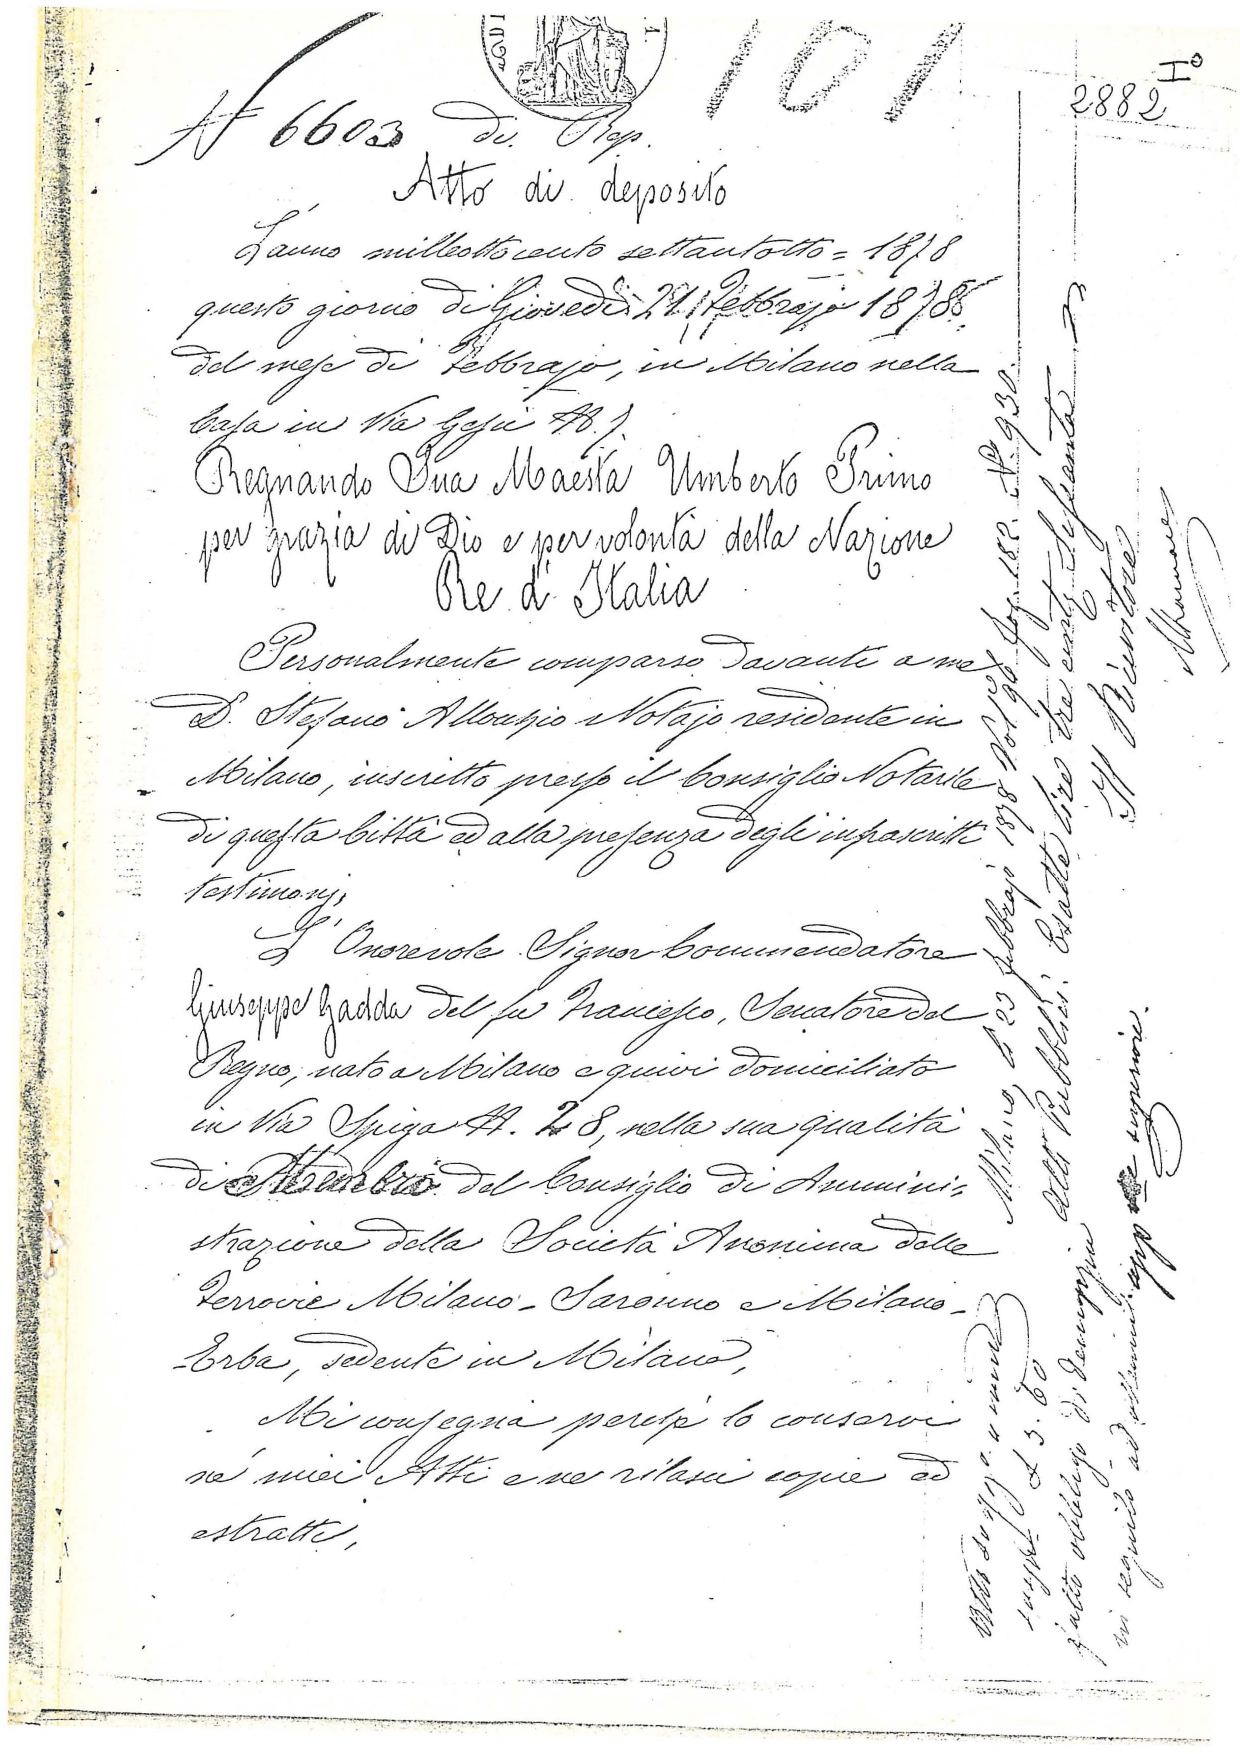 101
I°
2882
N 6603 di Rep.
Atto di deposito
L'anno milleottocento settantotto = 1878
questo giorno di Giovedì 21 Febbrajo 1878
del mese di Febbrajo, in Milano nella
Casa in Via Gesù N. 7.
Regnando Sua Maestà Umberto Primo
per grazia di Dio e per volontà della Nazione
Re d'Italia
Personalmente comparso davanti a me
D. Stefano Allocchio Notajo residente in
Milano, inscritto presso il Consiglio Notarile
di questa Città ed alla presenza degli infrascritti
testimonj,
L'Onorevole Signor Commendatore
Giuseppe Gadda del fu Francesco, Senatore del
Regno, nato a Milano e quivi domiciliato
in Via Spiga N. 28, nella sua qualità
di Membro del Consiglio di Ammini-
strazione della Società Anonima delle
Ferrovie Milano - Saronno e Milano -
Erba, sedente in Milano,
Mi consegna perchè lo conservi
ne' miei Atti e ne rilasci copie ed
estratti,
Milano, li 23 febbrajo 1878 Vol. 96 fog. 182 N. 930.
Atti Pubblici. Esatte lire tre cent. sessanta
Il Ricevitore
L 3. 60
fatto obbligo di
in seguito ad superiore.